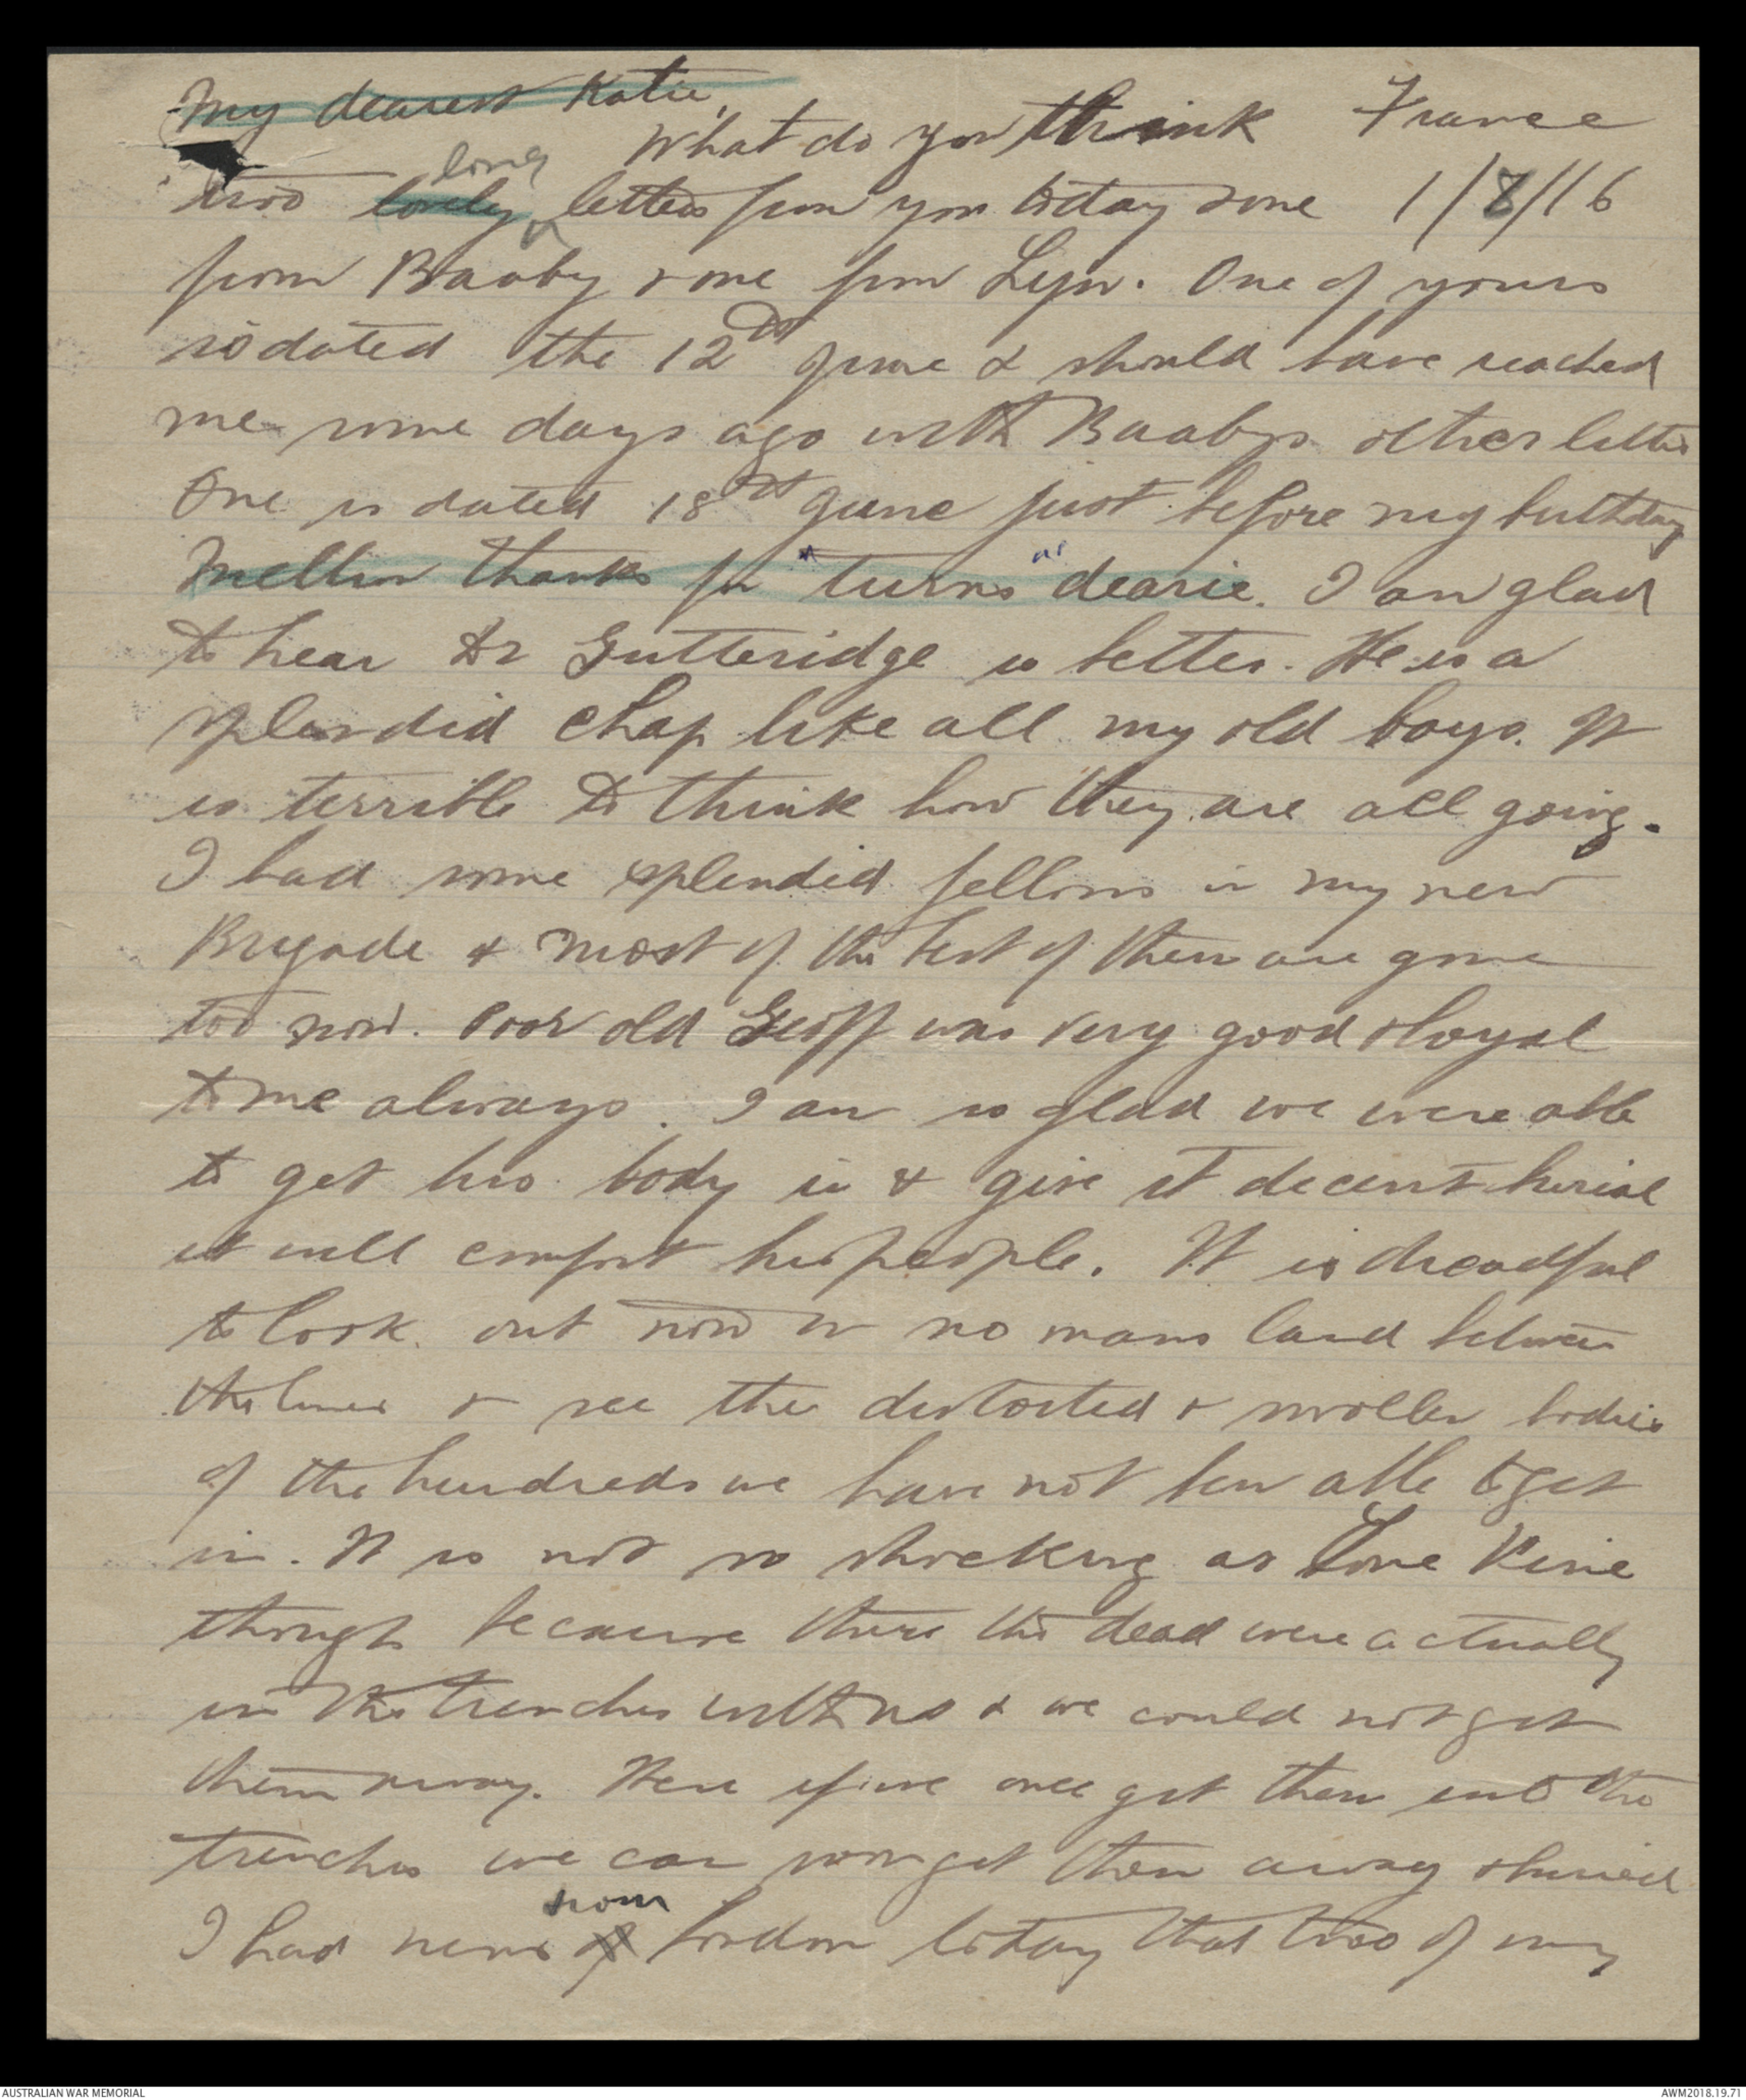 My dearest Katie,
What do you think France
two lovely long letters from you today & one 1/8/16
from Baaby & one from Lyn. One of yours
is dated the 12th June & should have reached
me some days ago with Baabys other letter
One is dated 18th June just before my birthday
Mellin thanks for "turns" dearie. I am glad
to hear Dr Gutteridge is better. He is a
splendid chap like all my old boys. It
is terrible to think how they are all going.
I had some splendid fellows in my new
Brigade & most of the best of them are gone
too now. Poor old Geoff was very good & loyal
to me always. I am so glad we were able
to get his body in & give it decent burial
it will comfort his people. It is dreadful
to look out now on no mans land between
the lines & see the distorted & swollen bodies
of the hundreds we have not been able to get
in. It is not so shocking as Lone Pine
though because there the dead were actually
in the trenches with us & we could not get
them away. Here if we once get them into the
trenches we can soon get them away & buried
I had news of from London today that two of my
AUSTRALIAN WAR MEMORIAL AWM2018.19.71